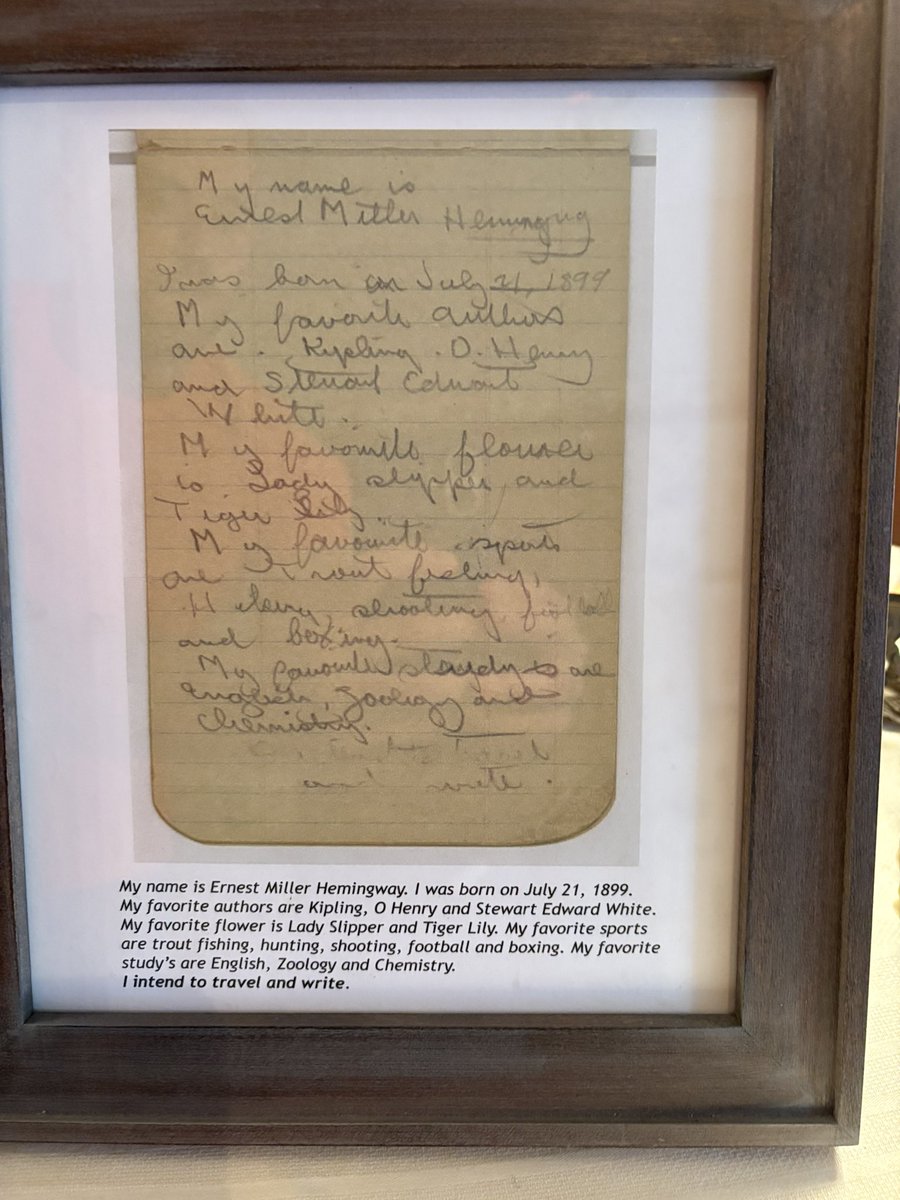 My name is
Ernest Miller Hemingway
I was born on July 21, 1899
My favorite authors
are . Kipling . O. Henry
and Stewart Edward
White .
My favorite flower
is Lady slipper and
Tiger Lily.
My favorite sports
are Trout fishing,
shooting, football
and boxing.
My favorite are
English, Zoology and
Chemistry.
travel
and write .
My name is Ernest Miller Hemingway. I was born on July 21, 1899.
My favorite authors are Kipling, O Henry and Stewart Edward White.
My favorite flower is Lady Slipper and Tiger Lily. My favorite sports
are trout fishing, hunting, shooting, football and boxing. My favorite
study’s are English, Zoology and Chemistry.
I intend to travel and write.